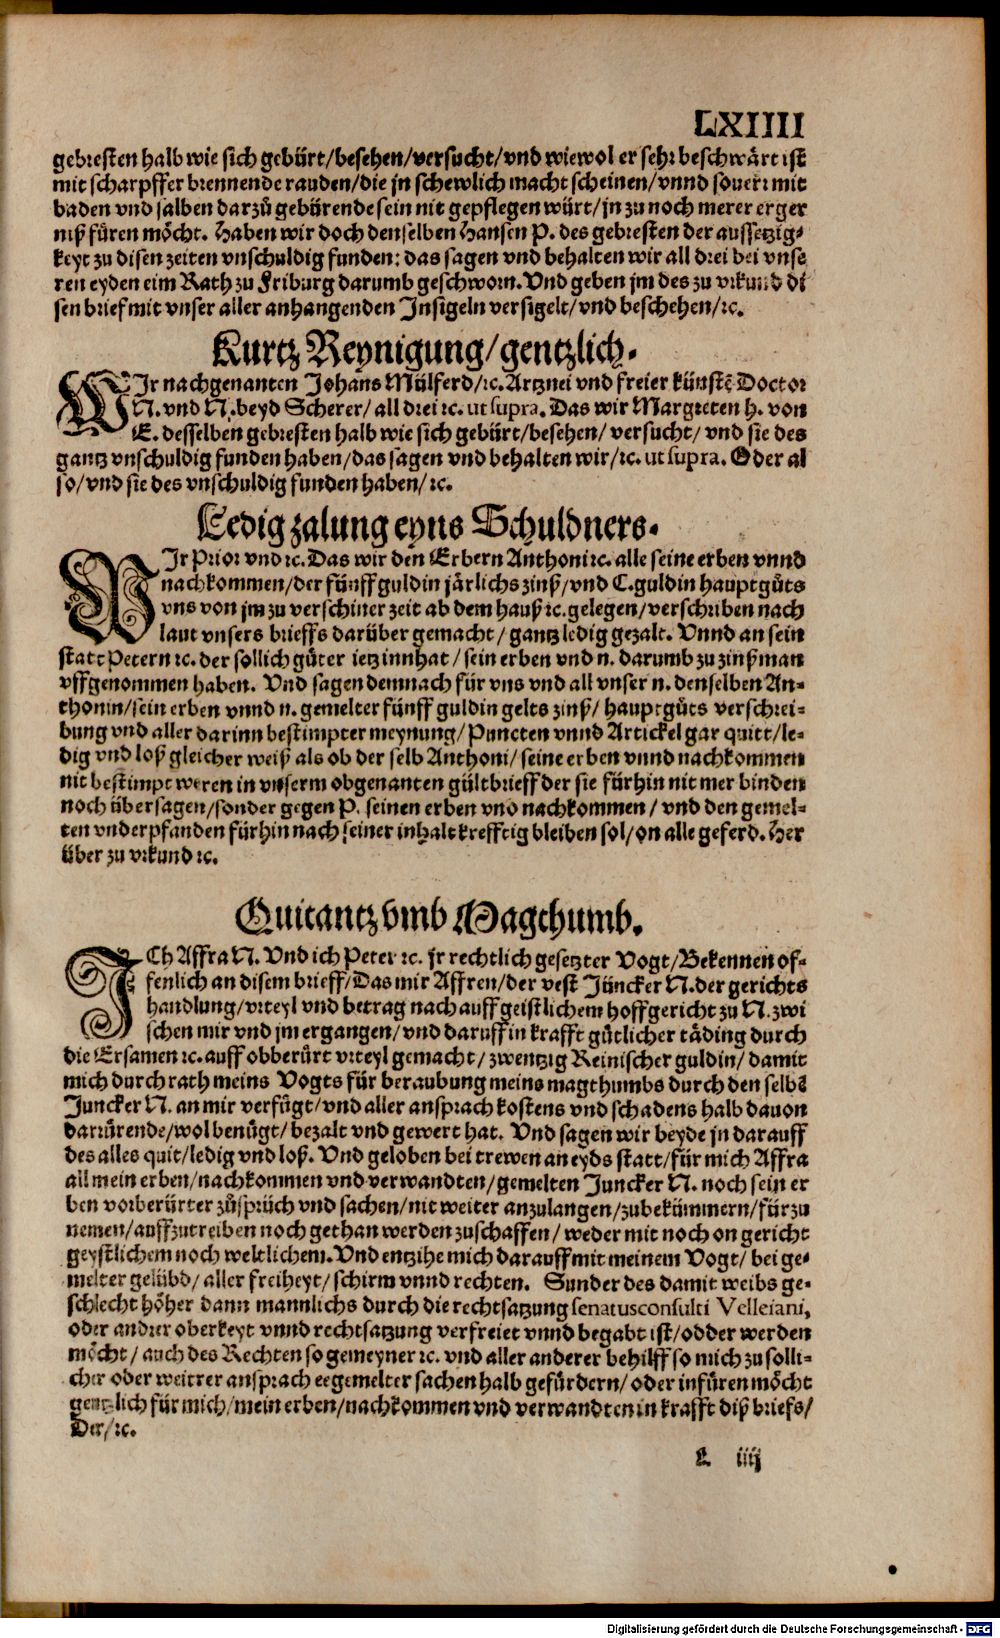 LXIIII
gebresten halb wie sich gebürt/besehen/versucht/vnd wiewol er sehr beschwärt ist
mit scharpffer brennende rauden/die jn schewlich macht scheinen/vnnd souerr mit
baden vnd salben darzů gebürende sein nit gepflegen würt/jn zu noch merer erger
niß füren möcht. Haben wir doch denselben Hansen P. des gebresten der aussetzig⸗
keyt zu disen zeiten vnschuldig funden: das sagen vnd behalten wir all drei bei vnse
ren eyden eim Rath zu Friburg darumb geschworn. Vnd geben jm des zu vrkund di
sen brief mit vnser aller anhangenden Insigeln versigelt/vnd beschehen/ꝛc.
Kurtz Reynigung/gentzlich.
WIr nachgenanten Johans Mülferd/ꝛc. Artznei vnd freier künstẽ Doctor
N. vnd N. beyd Scherer/all drei ꝛc. ut supra. Das wir Margreten h. von
E. desselben gebresten halb wie sich gebürt/besehen/versucht/vnd sie des
gantz vnschuldig funden haben/das sagen vnd behalten wir/ꝛc. ut supra. Oder al
so/vnd sie des vnschuldig funden haben/ꝛc.
Ledig zalung eyns Schuldners.
WIr Prior vnd ꝛc. Das wir den Erbern Anthoni ꝛc. alle seine erben vnnd
nachkommen/der fünff guldin järlichs zinß/vnd C. guldin hauptgůts
vns von jm zu verschiner zeit ab dem hauß ꝛc. gelegen/verschriben nach
laut vnsers brieffs darüber gemacht/gantz ledig gezalt. Vnnd an sein
statt Petern ꝛc. der sollich güter ietz innhat/sein erben vnd n. darumb zu zinßman
vffgenommen haben. Vnd sagen demnach für vns vnd all vnser n. denselben An⸗
thonin/sein erben vnnd n. gemelter fünff guldin gelts zinß/hauptgůts verschrei⸗
bung vnd aller darinn bestimpter meynung/Puncten vnnd Artickel gar quitt/le⸗
dig vnd loß gleicher weiß als ob der selb Anthoni/seine erben vnnd nachkommen
nit bestimpt weren in vnserm obgenanten gültbrieff der sie fürhin nit mer binden
noch übersagen/sonder gegen P. seinen erben vnd nachkommen/vnd den gemel⸗
ten vnderpfanden fürhin nach seiner inhalt krefftig bleiben sol/on alle geferd. Her
über zu vrkund ꝛc.
Quitantz vmb Magthumb.
ICh Affra N. Vnd ich Peter ꝛc. jr rechtlich gesetzter Vogt/Bekennen of⸗
fenlich an disem brieff/Das mir Affren/der vest Jüncker N. der gerichts
handlung/vrteyl vnd betrag nach auff geistlichem hoffgericht zu N. zwi
schen mir vnd jm ergangen/vnd daruff in krafft gütlicher täding durch
die Ersamen ꝛc. auff obberürt vrteyl gemacht/zwentzig Reinischer guldin/damit
mich durch rath meins Vogts für beraubung meins magthumbs durch den selbẽ
Juncker N. an mir verfügt/vnd aller ansprach kostens vnd schadens halb dauon
darrürende/wol benügt/bezalt vnd gewert hat. Vnd sagen wir beyde jn darauff
des alles quit/ledig vnd loß. Vnd geloben bei trewen an eyds statt/für mich Affra
all mein erben/nachkommen vnd verwandten/gemelten Juncker N. noch sein er
ben vorberürter zůsprüch vnd sachen/nit weiter anzulangen/zubekümmern/fürzu
nemen/auffzutreiben noch gethan werden zuschaffen/weder mit noch on gericht
geystlichem noch weltlichem. Vnd entzihe mich darauff mit meinem Vogt/bei ge⸗
melter gelübd/aller freiheyt/schirm vnnd rechten. Sunder des damit weibs ge⸗
schlecht höher dann mannlichs durch die rechtsatzung senatusconsulti Velleiani,
oder andrer oberkeyt vnnd rechtsatzung verfreiet vnnd begabt ist/odder werden
möcht/auch des Rechten so gemeyner ꝛc. vnd aller anderer behilff so mich zu solli⸗
cher oder weitrer ansprach eegemelter sachen halb gefürdern/oder infüren möcht
gentzlich für mich/mein erben/nachkommen vnd verwandten in krafft diß briefs/
Der/ꝛc.
L iiij
Digitalisierung gefördert durch die Deutsche Forschungsgemeinschaft - DFG